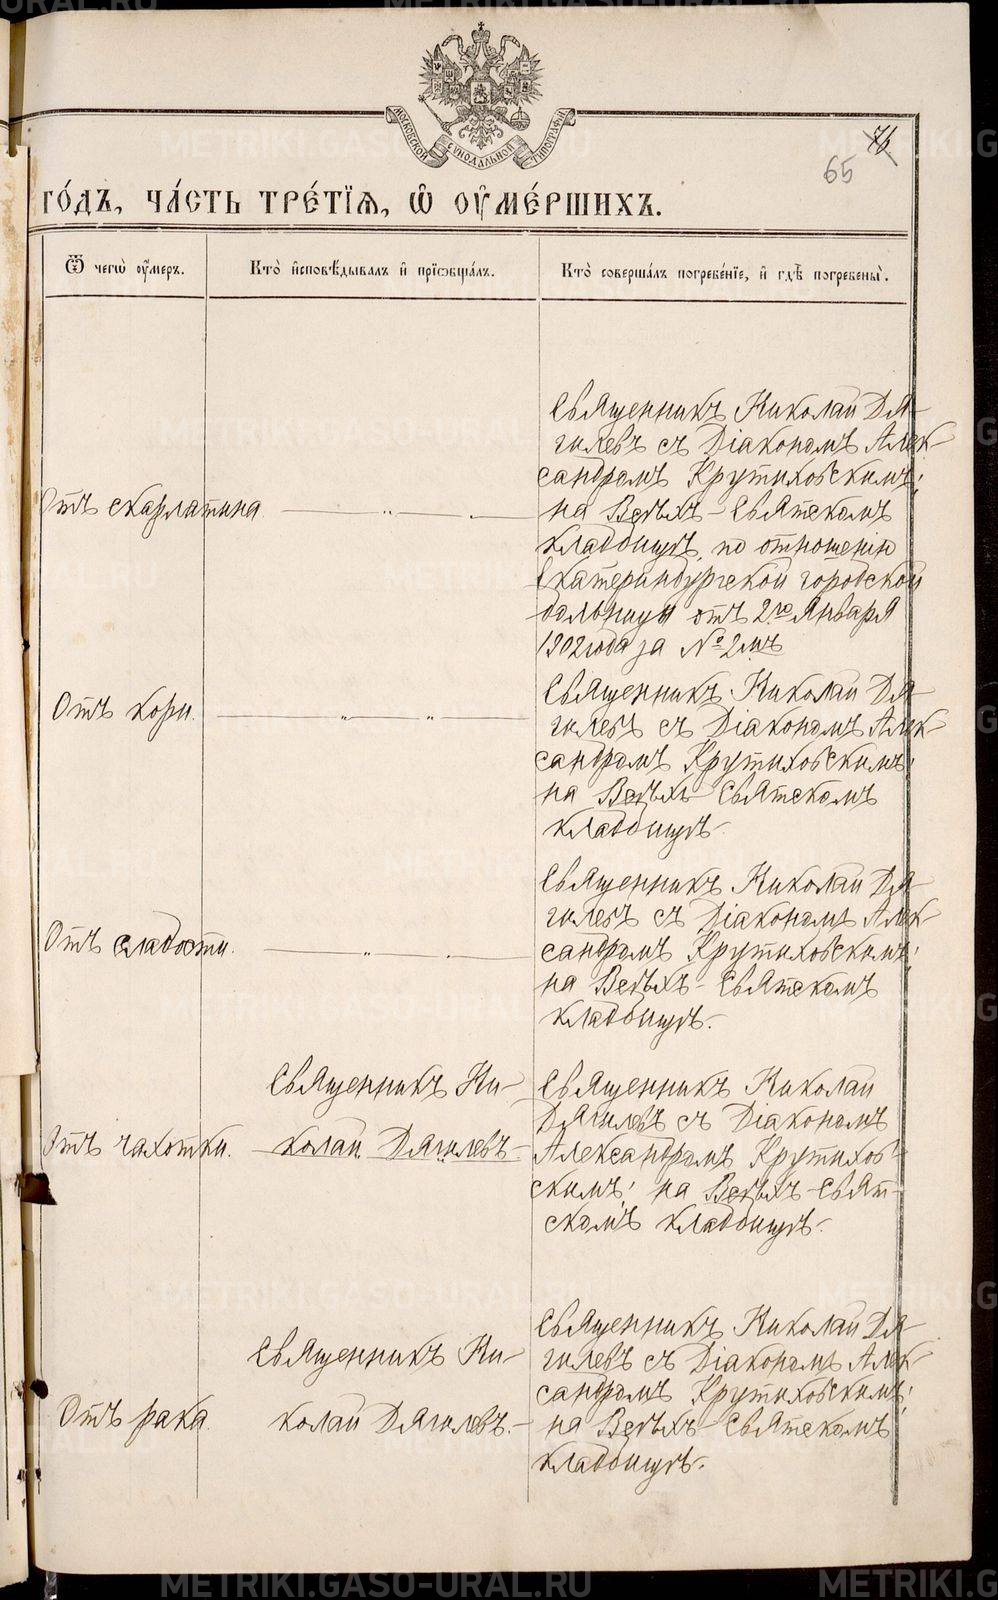 МОСКОВСКОЙ СѴНОДАЛЬНОЙ ТИПОГРАФІИ
76
65
го́дъ, ча́сть тре́тїѧ, ѡ҆ ᲂу҆ме́ршихъ.
Ѿ чегѡ̀ ᲂу҆́меръ.
Кто̀ и҆сповѣ́дывалъ и҆ прїѡбща́лъ.
Кто̀ соверша́лъ погребе́нїе, и҆ гдѣ̀ погребены̀.
Отъ скарлатина.
Священникъ Николай Дя-
гилевъ съ Діакономъ Алек-
сандромъ Крутиховскимъ;
на Всѣхъ-Святскомъ
кладбищѣ, по отношенію
Екатеринбургской городской
больницы отъ 2го Января
1902 года за № 2мъ
Отъ кори.
Священникъ Николай Дя-
гилевъ съ Діакономъ Алек-
сандромъ Крутиховскимъ;
на Всѣхъ-Святскомъ
кладбищѣ.
Отъ слабости.
Священникъ Николай Дя-
гилевъ съ Діакономъ Алек-
сандромъ Крутиховскимъ;
на Всѣхъ-Святскомъ
кладбищѣ.
Отъ чахотки.
Священникъ Ни-
колай Дягилевъ.
Священникъ Николай
Дягилевъ съ Діакономъ
Александромъ Крутихов-
скимъ; на Всѣхъ-Свят-
скомъ кладбищѣ.
Отъ рака.
Священникъ Ни-
колай Дягилевъ.
Священникъ Николай Дя-
гилевъ съ Діакономъ Алек-
сандромъ Крутиховскимъ;
на Всѣхъ-Святскомъ
кладбищѣ.
METRIKI.GASO-URAL.RU